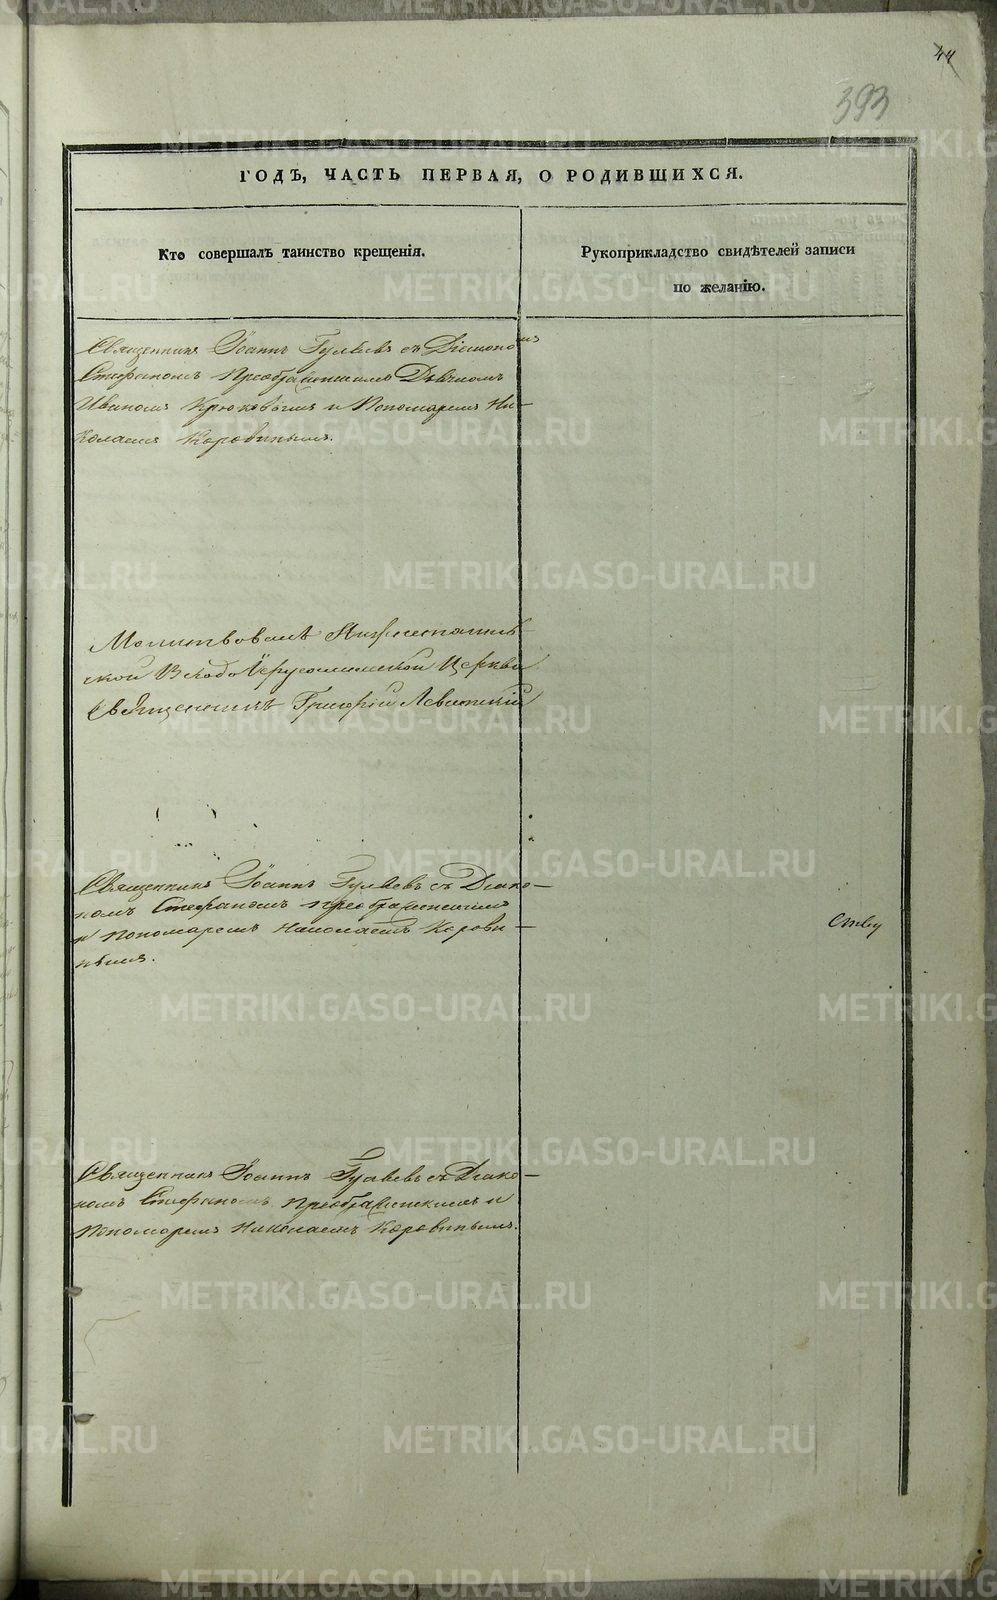 44
393
ГОДЪ, ЧАСТЬ ПЕРВАЯ, О РОДИВШИХСЯ.
Кто совершалъ таинство крещенія.
Рукоприкладство свидѣтелей записи
по желанію.
Священникъ Іоаннъ Гуляевъ съ Діакономъ
Стефаномъ Преображенскимъ Дьячкомъ
Иваномъ Крюковымъ и Пономаремъ Ни-
колаемъ Коровинымъ.
Молитвовалъ
ской Входо Іерусалимской Церкви
Священникъ Григорій Левитскій
Священникъ Іоаннъ Гуляевъ съ Діако-
номъ Стефаномъ Преображенскимъ
и Пономаремъ Николаемъ Корови-
нымъ.
Священникъ Іоаннъ Гуляевъ съ Діако-
номъ Стефаномъ Преображенскимъ и
Пономаремъ Николаемъ Коровинымъ.
METRIKI.GASO-URAL.RU